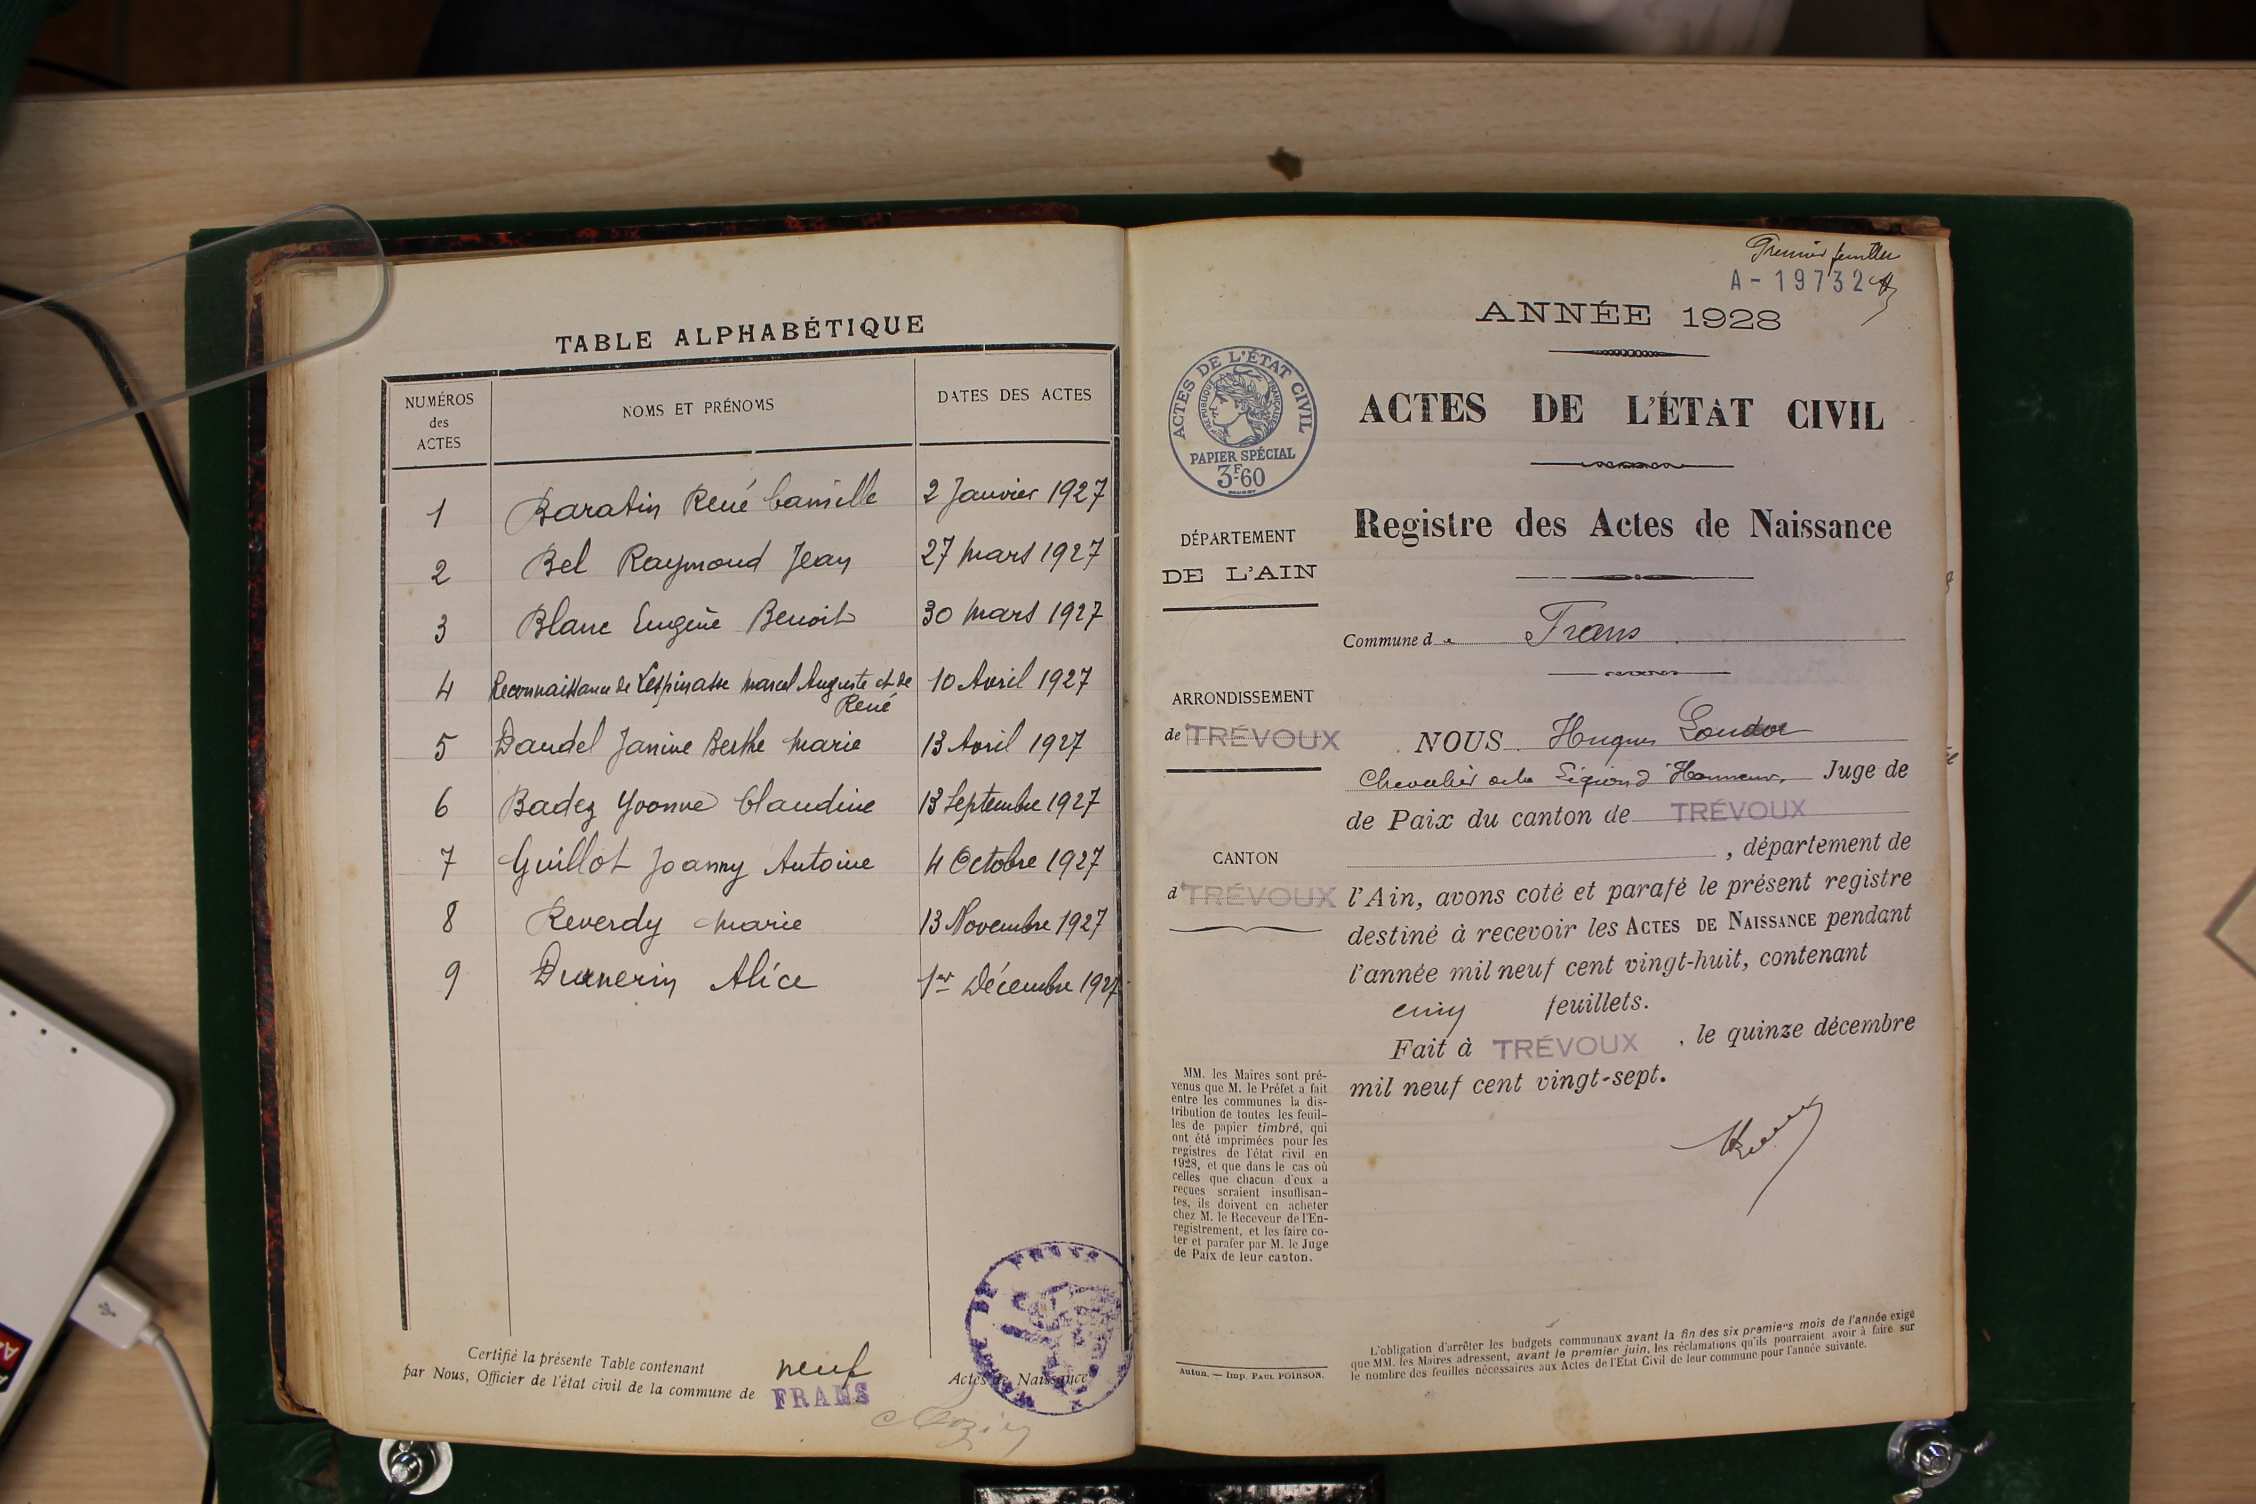 TABLE ALPHABÉTIQUE
NUMÉROS
des
ACTES
NOMS ET PRÉNOMS
DATES DES ACTES
1 Baratin René Camille 2 Janvier 1927
2 Bel Raymond Jean 27 Mars 1927
3 Blanc Eugène Benoit 30 Mars 1927
4 Reconnaissance de Lespinasse Marcel Auguste et de 10 Avril 1927
René
5 Daudel Janine Berthe Marie 13 Avril 1927
6 Badez Yvonne Claudine 13 Septembre 1927
7 Guillot Joanny Antoine 4 Octobre 1927
8 Reverdy Marie 13 Novembre 1927
9 Dumerin Alice 1er Décembre 1927
Certifié la présente Table contenant neuf Actes de Naissance
par Nous, Officier de l'état civil de la commune de FRANS
MAIRIE DE FRANS
Premier feuillet
A-19732
ANNÉE 1928
ACTES DE L'ÉTAT CIVIL
RÉPUBLIQUE FRANÇAISE
PAPIER SPÉCIAL
3F.60
ACTES DE L'ÉTAT CIVIL
Registre des Actes de Naissance
DÉPARTEMENT
DE L'AIN
Commune de Frans
ARRONDISSEMENT
de TRÉVOUX
CANTON
d TRÉVOUX
NOUS Hugues
Chevalier de la Légion d'Honneur, Juge de
de Paix du canton de TRÉVOUX
, département de
l'Ain, avons coté et parafé le présent registre
destiné à recevoir les ACTES DE NAISSANCE pendant
l'année mil neuf cent vingt-huit, contenant
cinq feuillets.
Fait à TRÉVOUX, le quinze décembre
mil neuf cent vingt-sept.
MM. les Maires sont pré-
venus que M. le Préfet a fait
entre les communes la dis-
tribution de toutes les feuil-
les de papier timbré, qui
ont été imprimées pour les
registres de l'état civil en
1928, et que dans le cas où
celles que chacun d'eux a
reçues seraient insuffisan-
tes, ils doivent en acheter
chez M. le Receveur de l'En-
registrement, et les faire co-
ter et parafer par M. le Juge
de Paix de leur canton.
Autun. — Imp. PAUL POIRSON.
L'obligation d'arrêter les budgets communaux avant la fin des six premiers mois de l'année exige
que MM. les Maires adressent, avant le premier juin, les réclamations qu'ils pourraient avoir à faire sur
le nombre des feuilles nécessaires aux Actes de l'Etat Civil de leur commune pour l'année suivante.